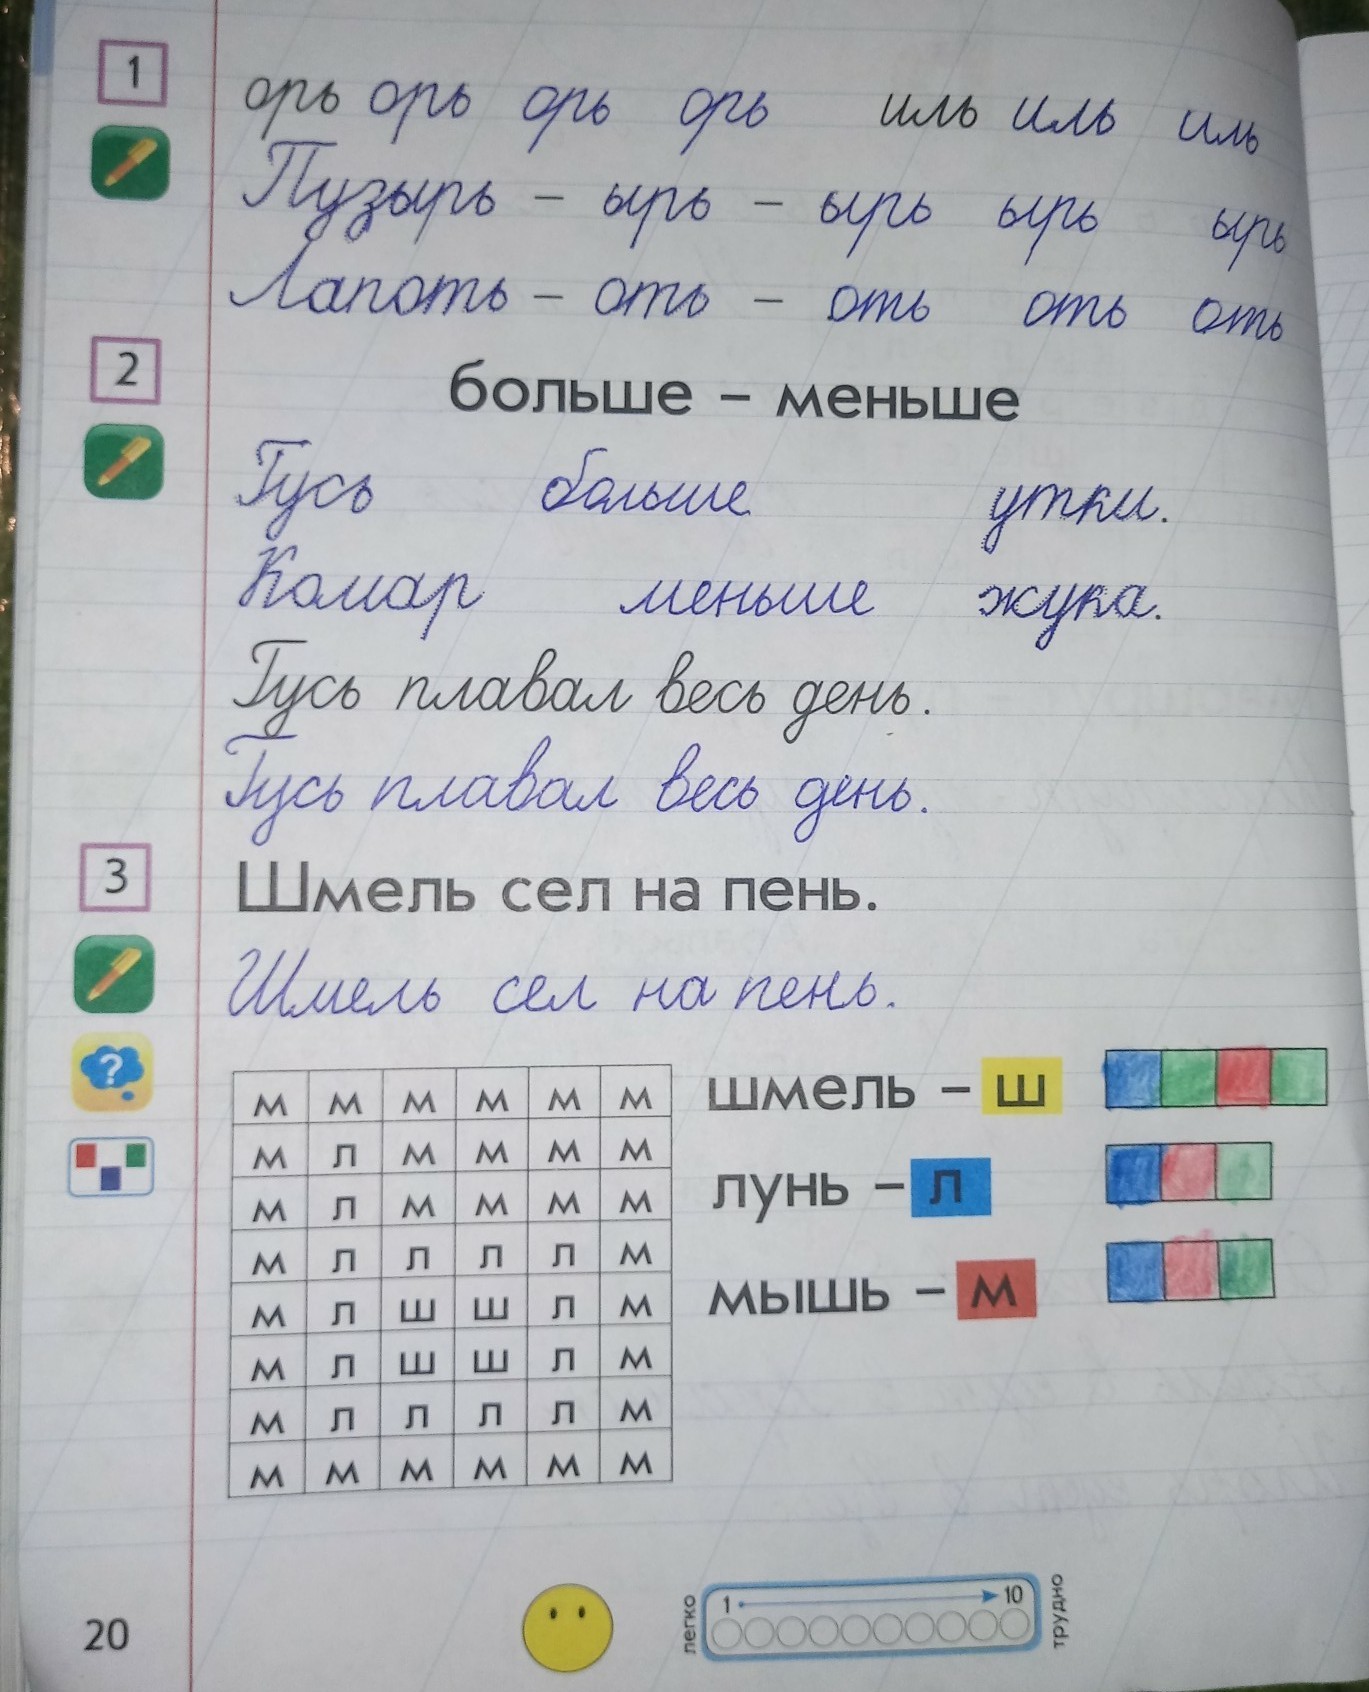 1
орь орь орь орь иль иль иль
Пузырь – ырь – ырь ырь ырь
Лапоть – оть – оть оть оть
2
больше – меньше
Гусь больше утки.
Комар меньше жука.
Гусь плавал весь день.
Гусь плавал весь день.
3
Шмель сел на пень.
Шмель сел на пень.
?
м м м м м м
м л м м м м
м л м м м м
м л л л л м
м л ш ш л м
м л ш ш л м
м л л л л м
м м м м м м
шмель – ш
лунь – л
мышь – м
20
легко 1 10 трудно